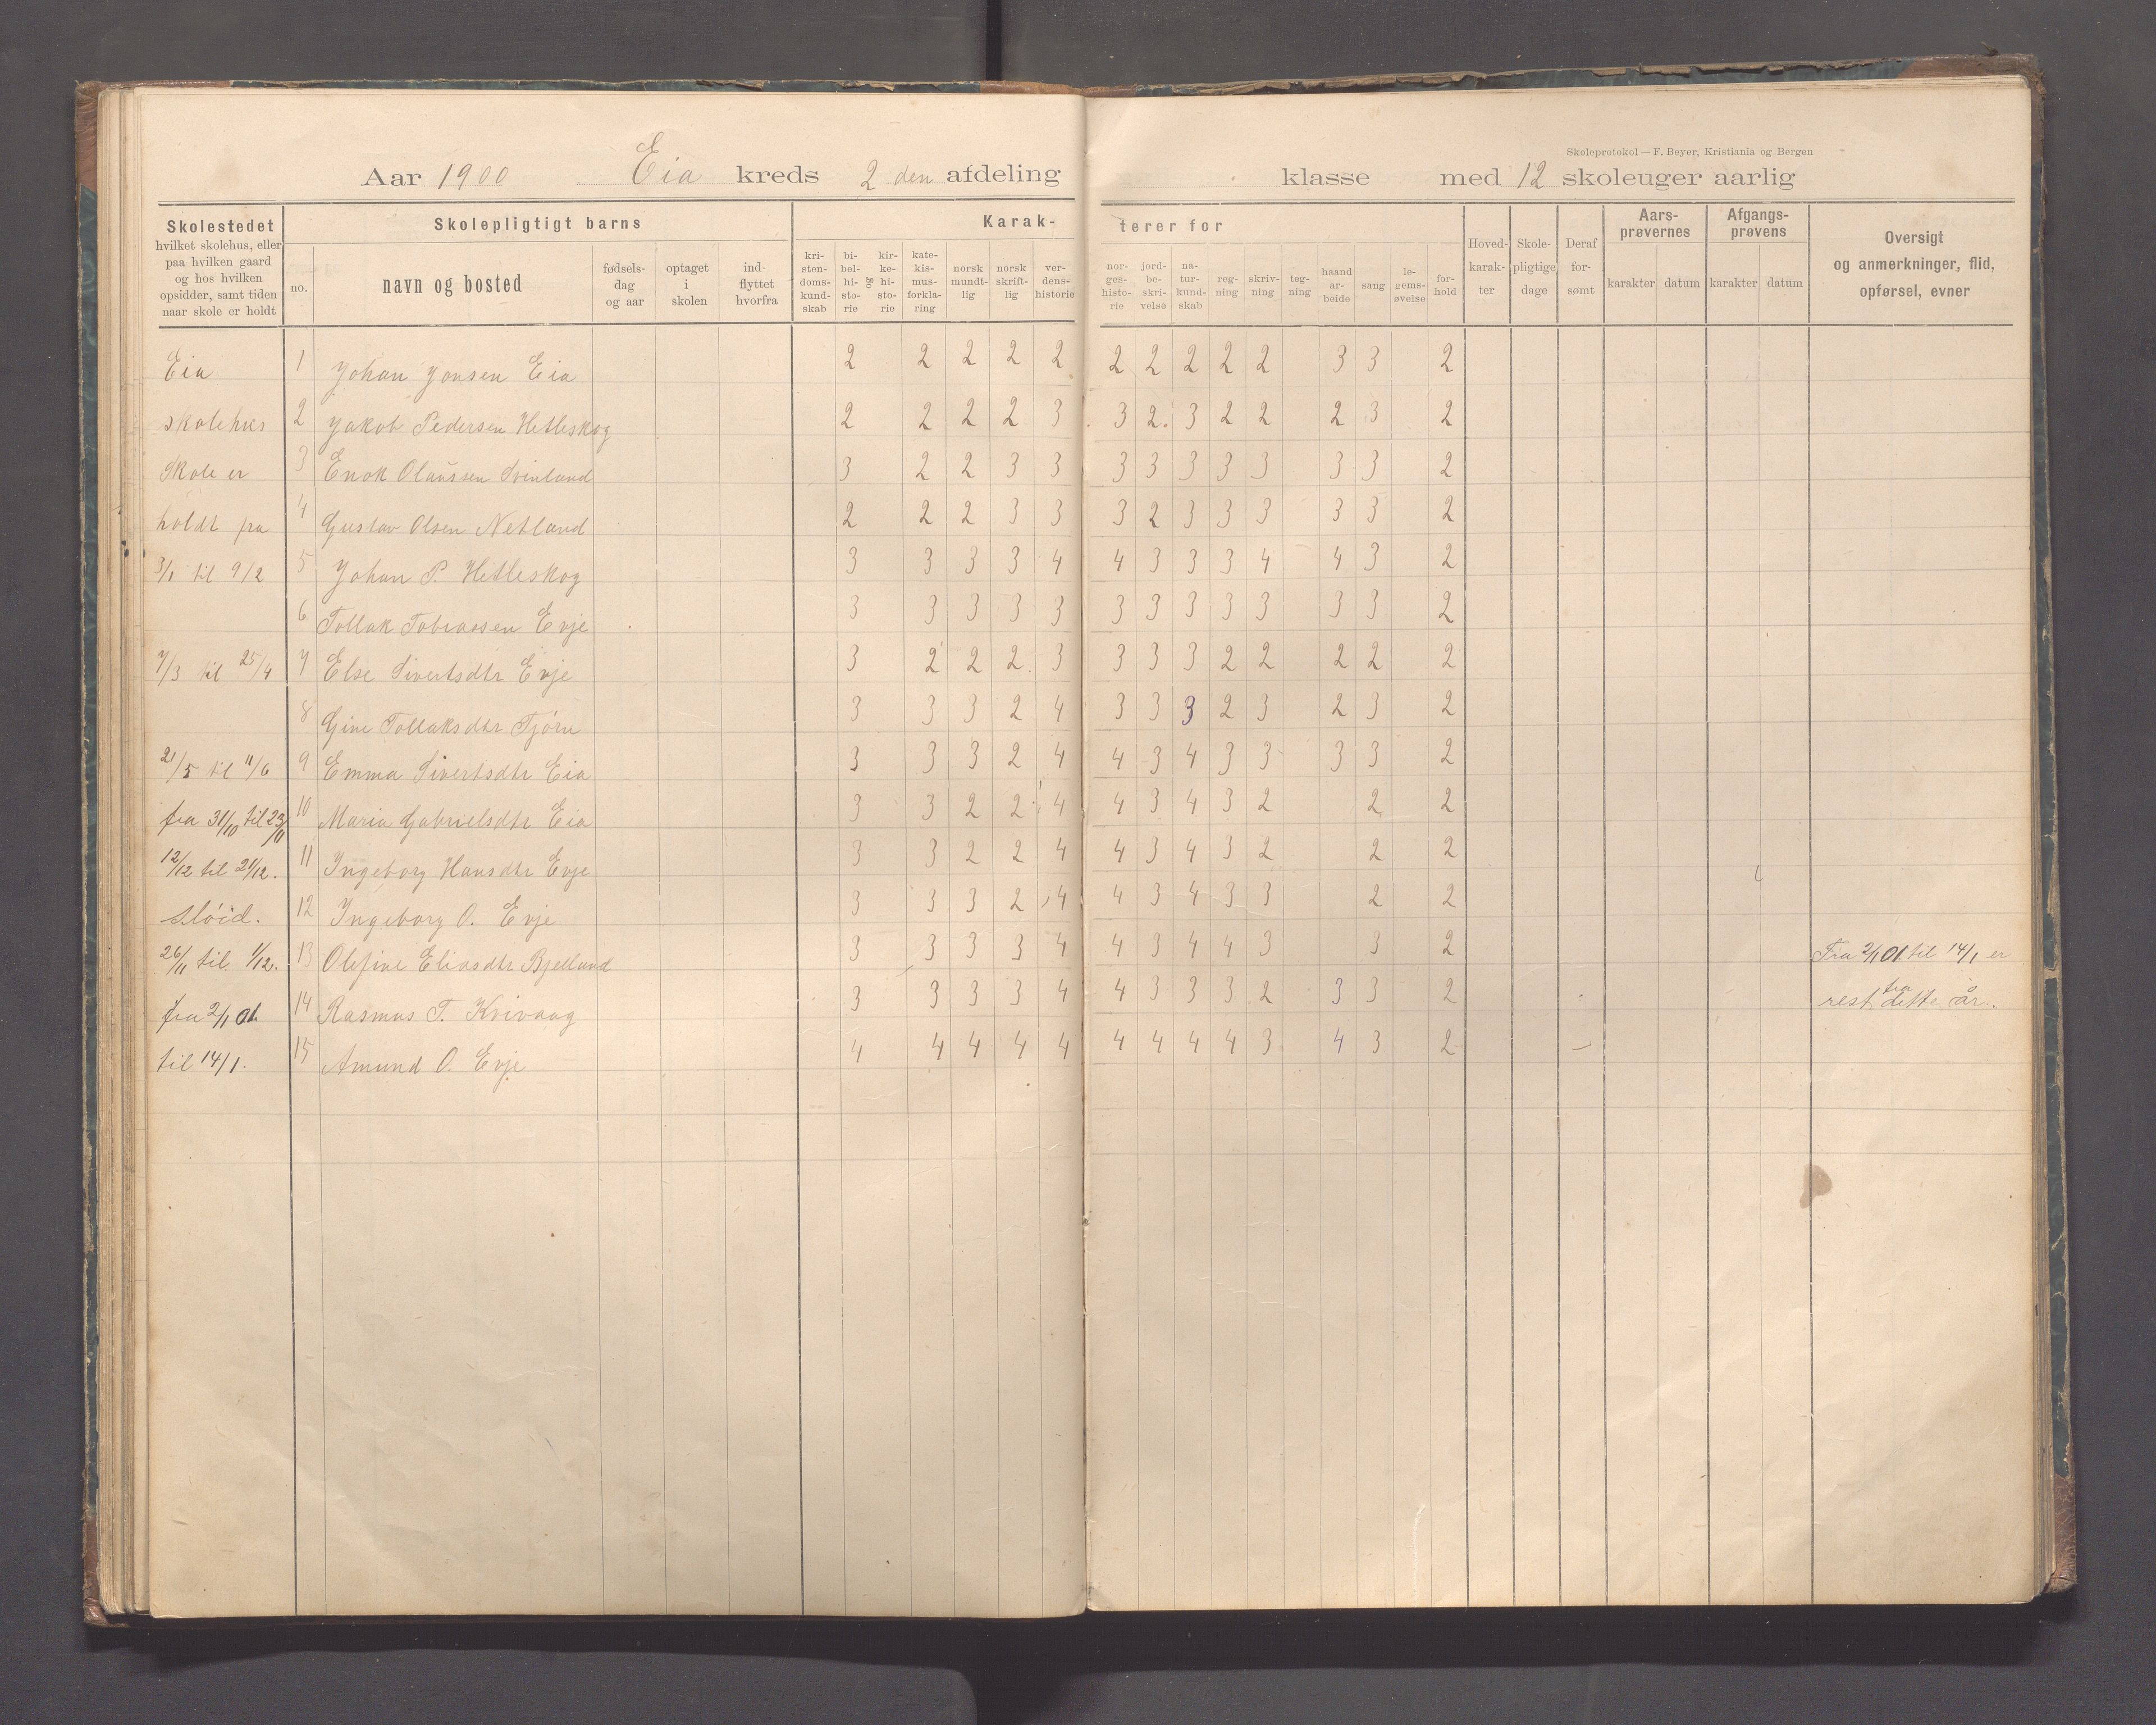 Skoleprotokol — F. Beyer, Kristiania og Bergen
Aar 1900 Eia kreds 2 den afdeling klasse med 12 skoleuger aarlig
Skolestedet hvilket skolehus, eller paa hvilken gaard og hos hvilken opsidder, samt tiden naar skole er holdt
Skolepligtigt barns
no. navn og bosted fødselsdag og aar optaget i skolen indflyttet hvorfra
Karakterer for
kristendomskundskab bibelhistorie og kirkehistorie katekismusforklaring norsk mundtlig norsk skriftlig verdenshistorie norgeshistorie jordbeskrivelse naturkundskab regning skrivning tegning haandarbeide sang legemsøvelse forhold
Hovedkarakter Skolepligtige dage Deraf forsømt
Aarsprøvernes karakter datum Afgangsprøvens karakter datum
Oversigt og anmerkninger, flid, opførsel, evner
Eia 1 Johan Jonsen Eia 2 2 2 2 2 2 2 2 2 2 3 3 2
skolehus 2 Jakob Pedersen Hetleskog 2 2 2 2 3 3 2 3 2 2 2 3 2
Skole er 3 Enok Olaussen Svinland 3 2 2 3 3 3 3 3 3 3 3 3 2
holdt fra 4 Gustav Olsen Netland 2 2 2 3 3 3 2 3 3 3 3 3 2
3/1 til 9/2 5 Johan P. Hetleskog 3 3 3 3 4 4 3 3 3 4 4 3 2
6 Tollak Tobiassen Evje 3 3 3 3 3 3 3 3 3 3 3 3 2
7/3 til 25/4 7 Else Sivertsdtr Evje 3 2 2 2 3 3 3 3 2 2 2 2 2
8 Gine Tollaksdtr Tjörn 3 3 3 2 4 3 3 3 2 3 2 3 2
21/5 til 11/6 9 Emma Sivertsdtr Eia 3 3 3 2 4 4 3 4 3 3 3 3 2
fra 31/10 til 23/11 10 Maria Gabrielsdtr Eia 3 3 2 2 4 4 3 4 3 2 2 2
12/12 til 21/12. 11 Ingeborg Hansdtr Evje 3 3 2 2 4 4 3 4 3 2 2 2
sløid. 12 Ingeborg O. Evje 3 3 3 2 4 4 3 4 3 3 2 2
26/11 til 1/12. 13 Olefine Eliasdtr Bjelland 3 3 3 3 4 4 3 4 4 3 3 2 Fra 2/1 01 til 14/1 er
fra 2/1 01 14 Rasmus T. Kvivaag 3 3 3 3 4 4 3 3 3 2 3 3 2 rest fra dette år.
til 14/1. 15 Amund O. Evje 4 4 4 4 4 4 4 4 4 3 4 3 2 –